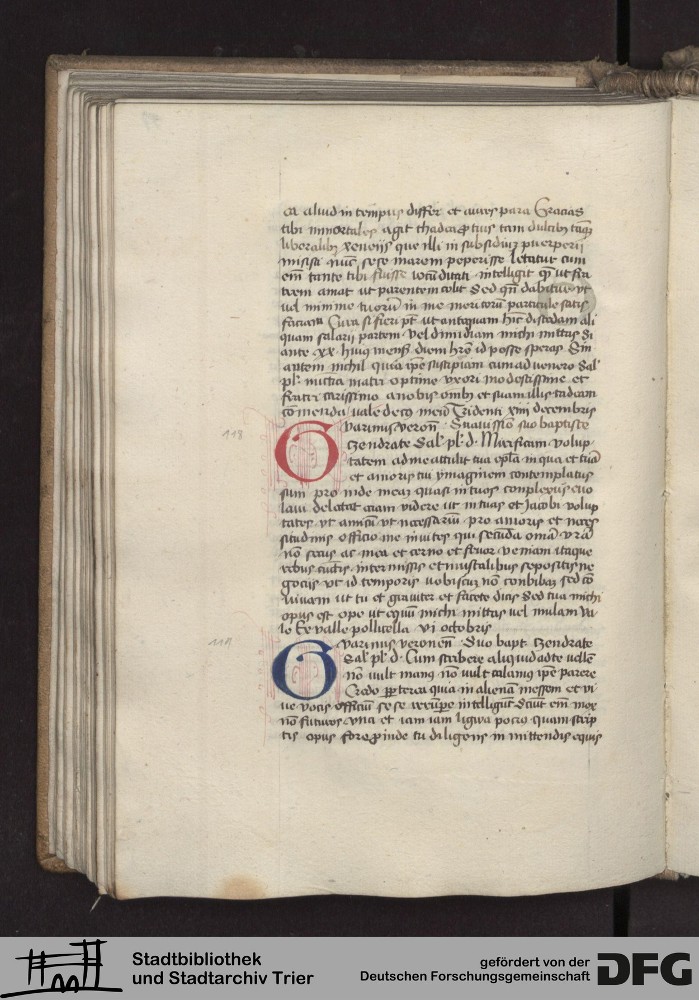 ca aliud in tempus differ et aures para Gracias
tibi immortales agit thadea tuis tam dulcibus tamque
liberalibus xeneijs que illi in subsidium puerperij
misisti nunc sese marem peperisse letatur cum
tante tibi fuisse iocunditati intelligit ut fra
trem amat ut parentem colit Sed dabitur ut
vel minime tuorum in me meritorum particule satis
faciam Cura si fieri ut antequam hinc discedam ali
quam salarij partem vel dimidiam michi mittas Si
ante xx huius diem id posse speras Sin
autem nichil quia suscipiam cum advenero Sal
pl matri optime uxori modestissime et
fratri carissimo a nobis et suam illis tadeam
comenda vale decus meum Tridenti xiiij decembris
118
Guarinus veron Suavissimo suo baptiste
zendrate Sal pl d Maximam volup
tatem ad me attulit tua in qua et tuam
et amoris tui ymaginem contemplatus
sum pro inde meas quasi in tuos complexus evo
lavi delectat etiam videre ut in tuas et Jacobi volup
tates ut amicum ut necessarium pro amoris et neces
situdinis officio me invites qui secunda omnia vestra
non secus ac mea et cerno et veniam itaque
rebus cunctis intermissis et sepositis ne
gocijs ut id temporis vobiscum non conbibam sed con
vivam ut tu et graviter et facete dicis Sed tua michi
opus est ope ut equum michi mittas vel mulam va
le Ex valle pollicella vi octobris
119
Guarinus veronen Suo bapt zendrate
Sal pl d Cum scribere aliquid ad te vellem
non vult manus non vult calamus parere
Credo propterea quia in alienam messem et vi
ve vocis officium se se intelligunt Sciunt enim mox
non futuros et iam iam ligwa pocius quam scrip
tis opus fore proinde tu diligens in mittendis equis
Stadtbibliothek
und Stadtarchiv Trier
gefördert von der
Deutschen Forschungsgemeinschaft
DFG